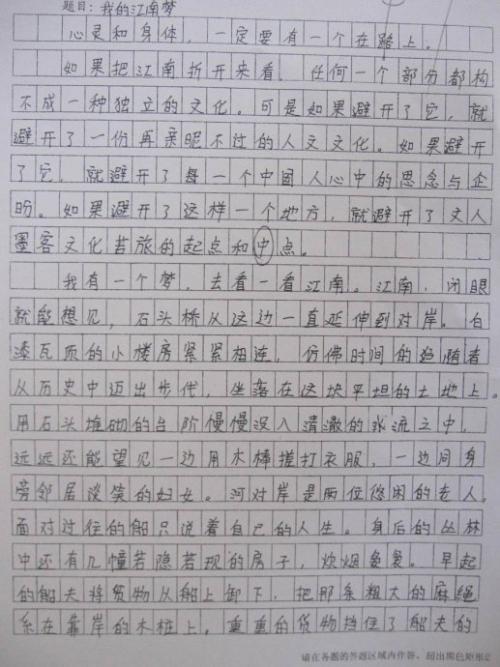 题目：我的江南梦
心灵和身体，一定要有一个在路上。
如果把江南拆开来看，任何一个部分都构
不成一种独立的文化。可是如果避开了它，就
避开了一份再亲昵不过的人文文化。如果避开
了它，就避开了每一个中国人心中的思念与企
盼。如果避开了这样一个地方，就避开了文人
墨客文化苦旅的起点和中点。
我有一个梦，去看一看江南。江南，闭眼
就能想见，石头桥从这边一直延伸到对岸。白
漆瓦顶的小楼房紧紧相连，仿佛时间的追随者
从历史中迈出步伐，坐落在这块平坦的土地上。
用石头堆砌的台阶慢慢没入清澈的水流之中，
远远还能望见一边用木棒搓打衣服，一边同身
旁邻居谈笑的妇女。河对岸是两位悠闲的老人，
面对过往的船只说着自己的人生。身后的丛林
中还有几幢若隐若现的房子，炊烟袅袅。早起
的船夫将货物从船上卸下，把那条粗大的麻绳
系在靠岸的木桩上，重重的货物挡住了船夫的
请在各题的答题区域内作答，超出黑色矩形